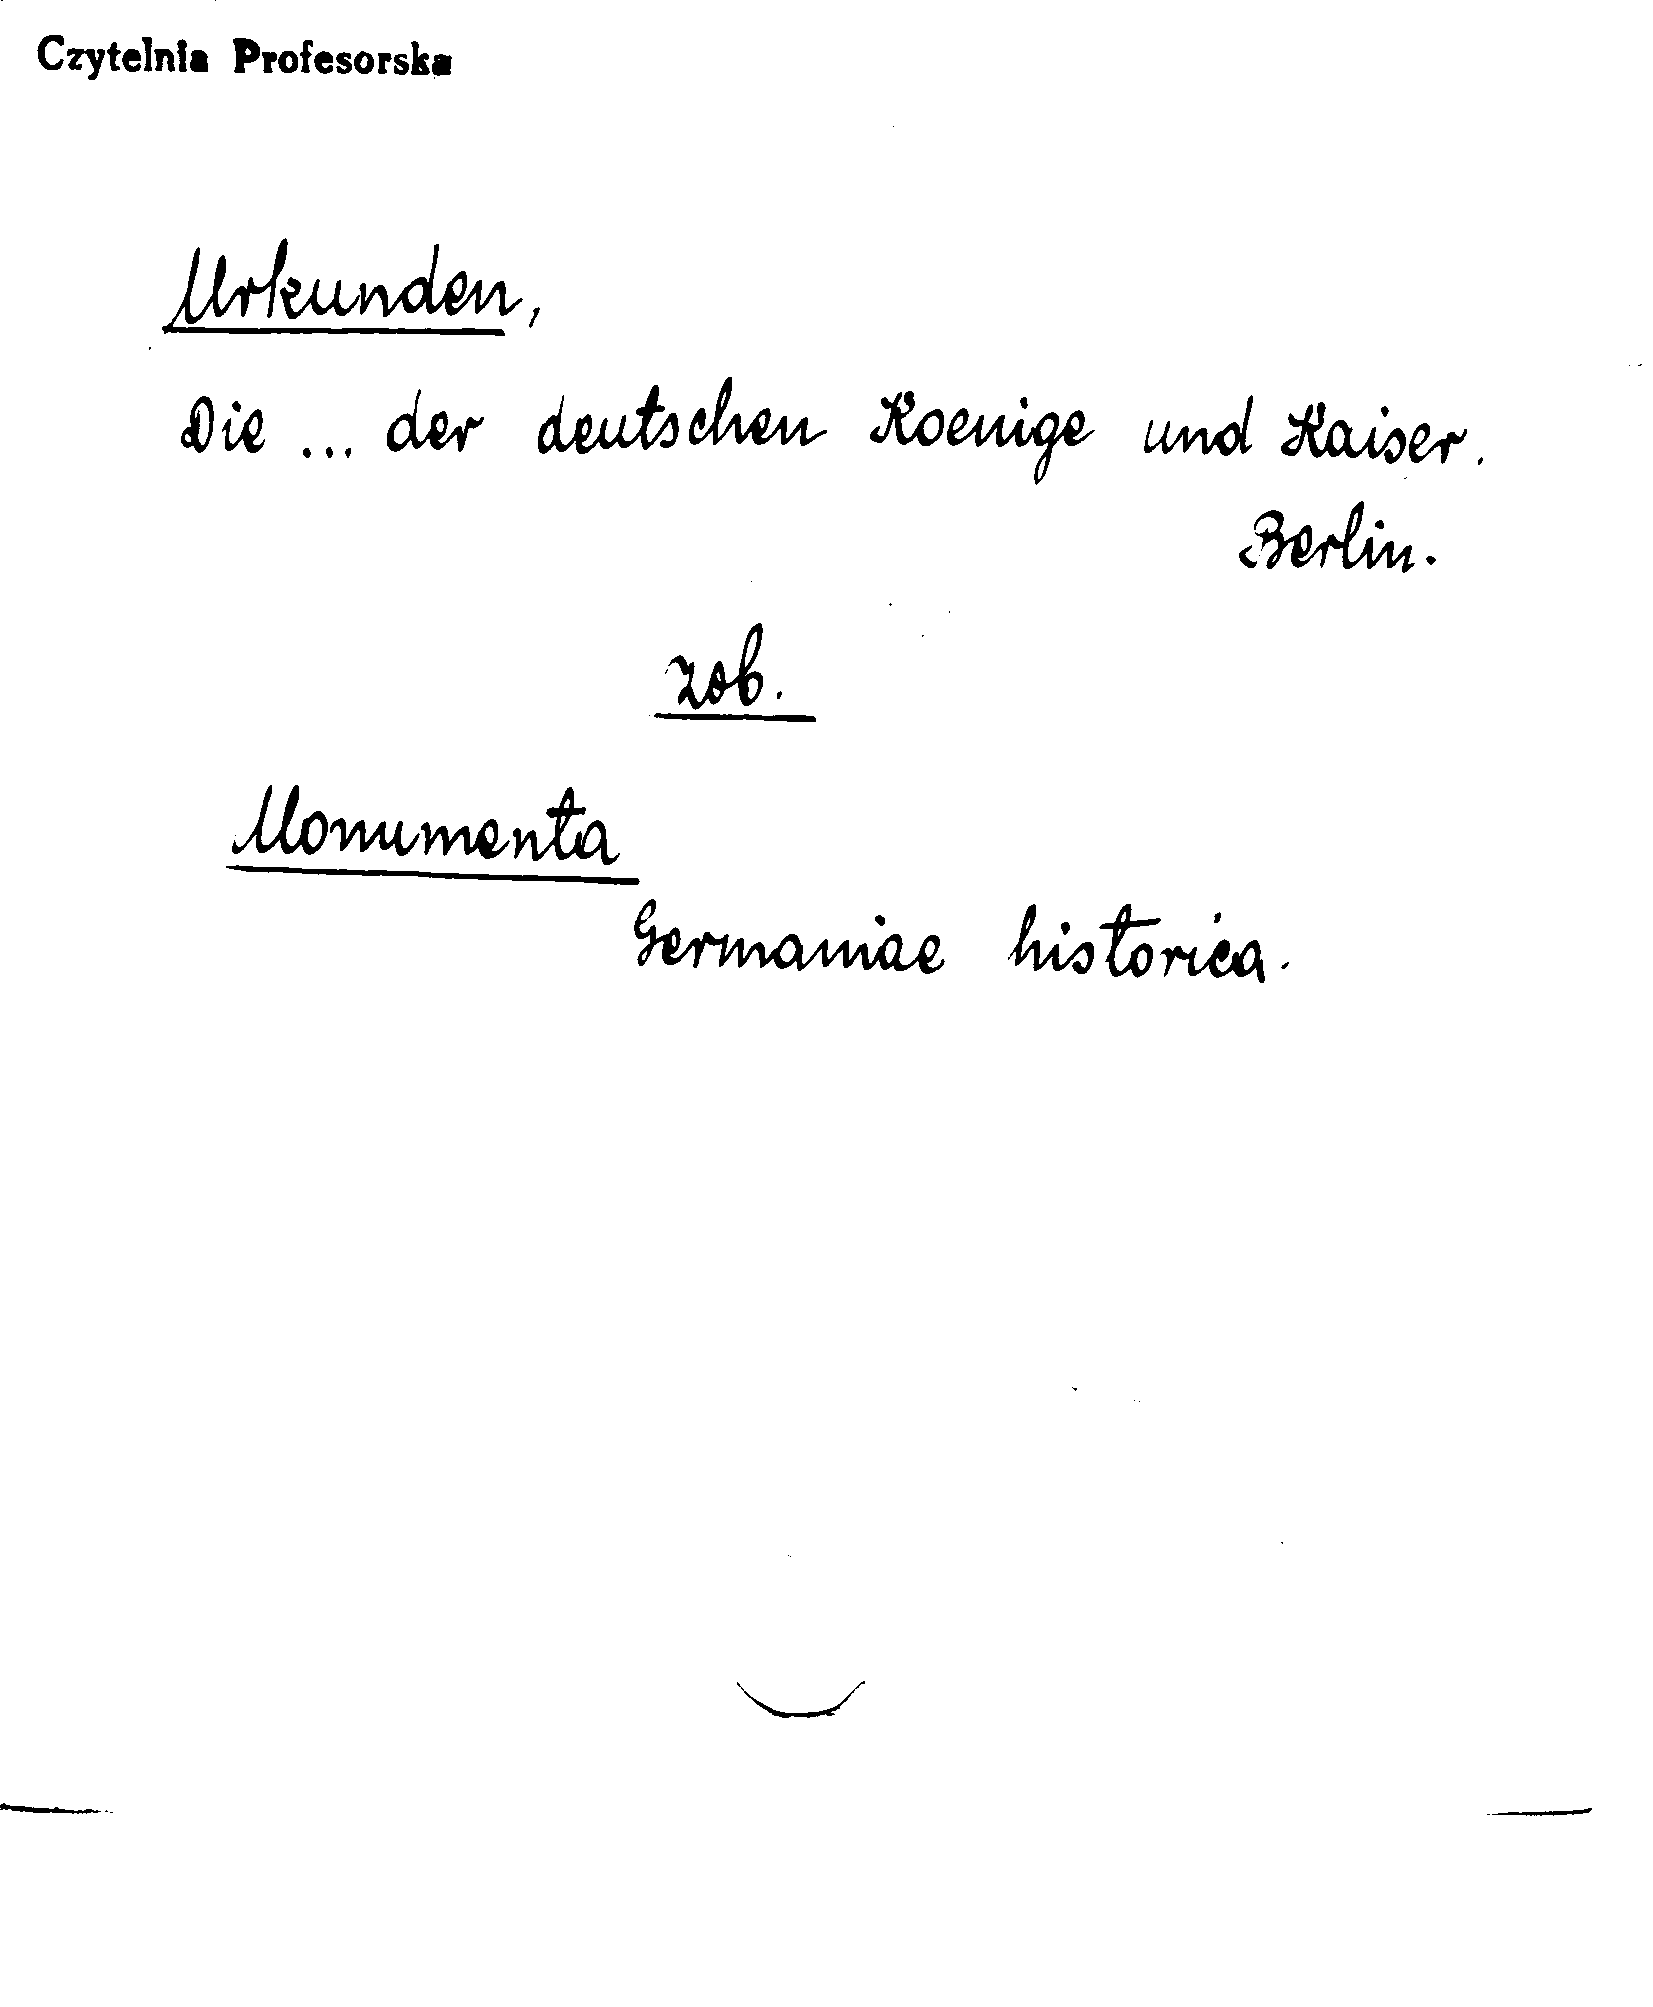 Czytelnia Profesorska
Urkunden,
Die ... der deutschen Koenige und Kaiser.
Berlin.
zob.
Monumenta
Germaniae historica.